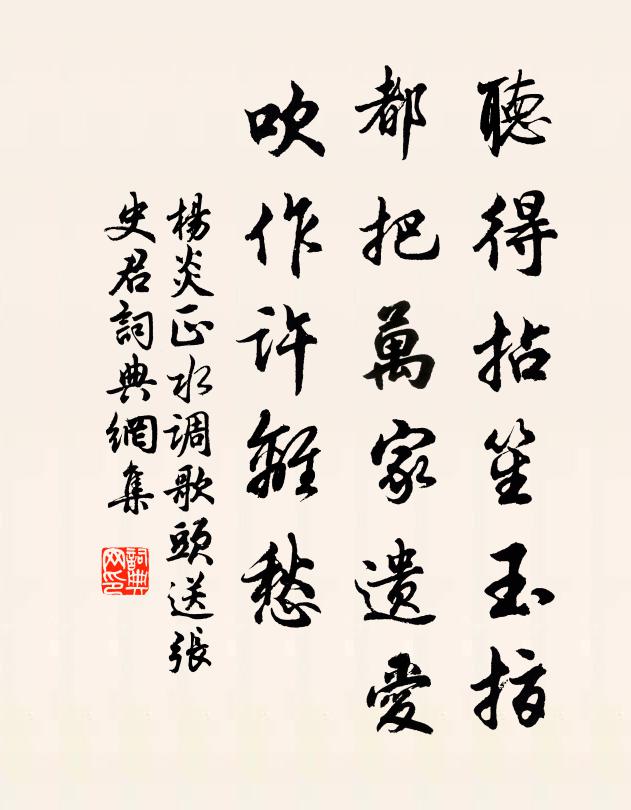 聽得拈笙玉指
都把萬家遺愛
吹作許離愁
楊炎正水调歌頭送張
史君詞典網集
詞典网印